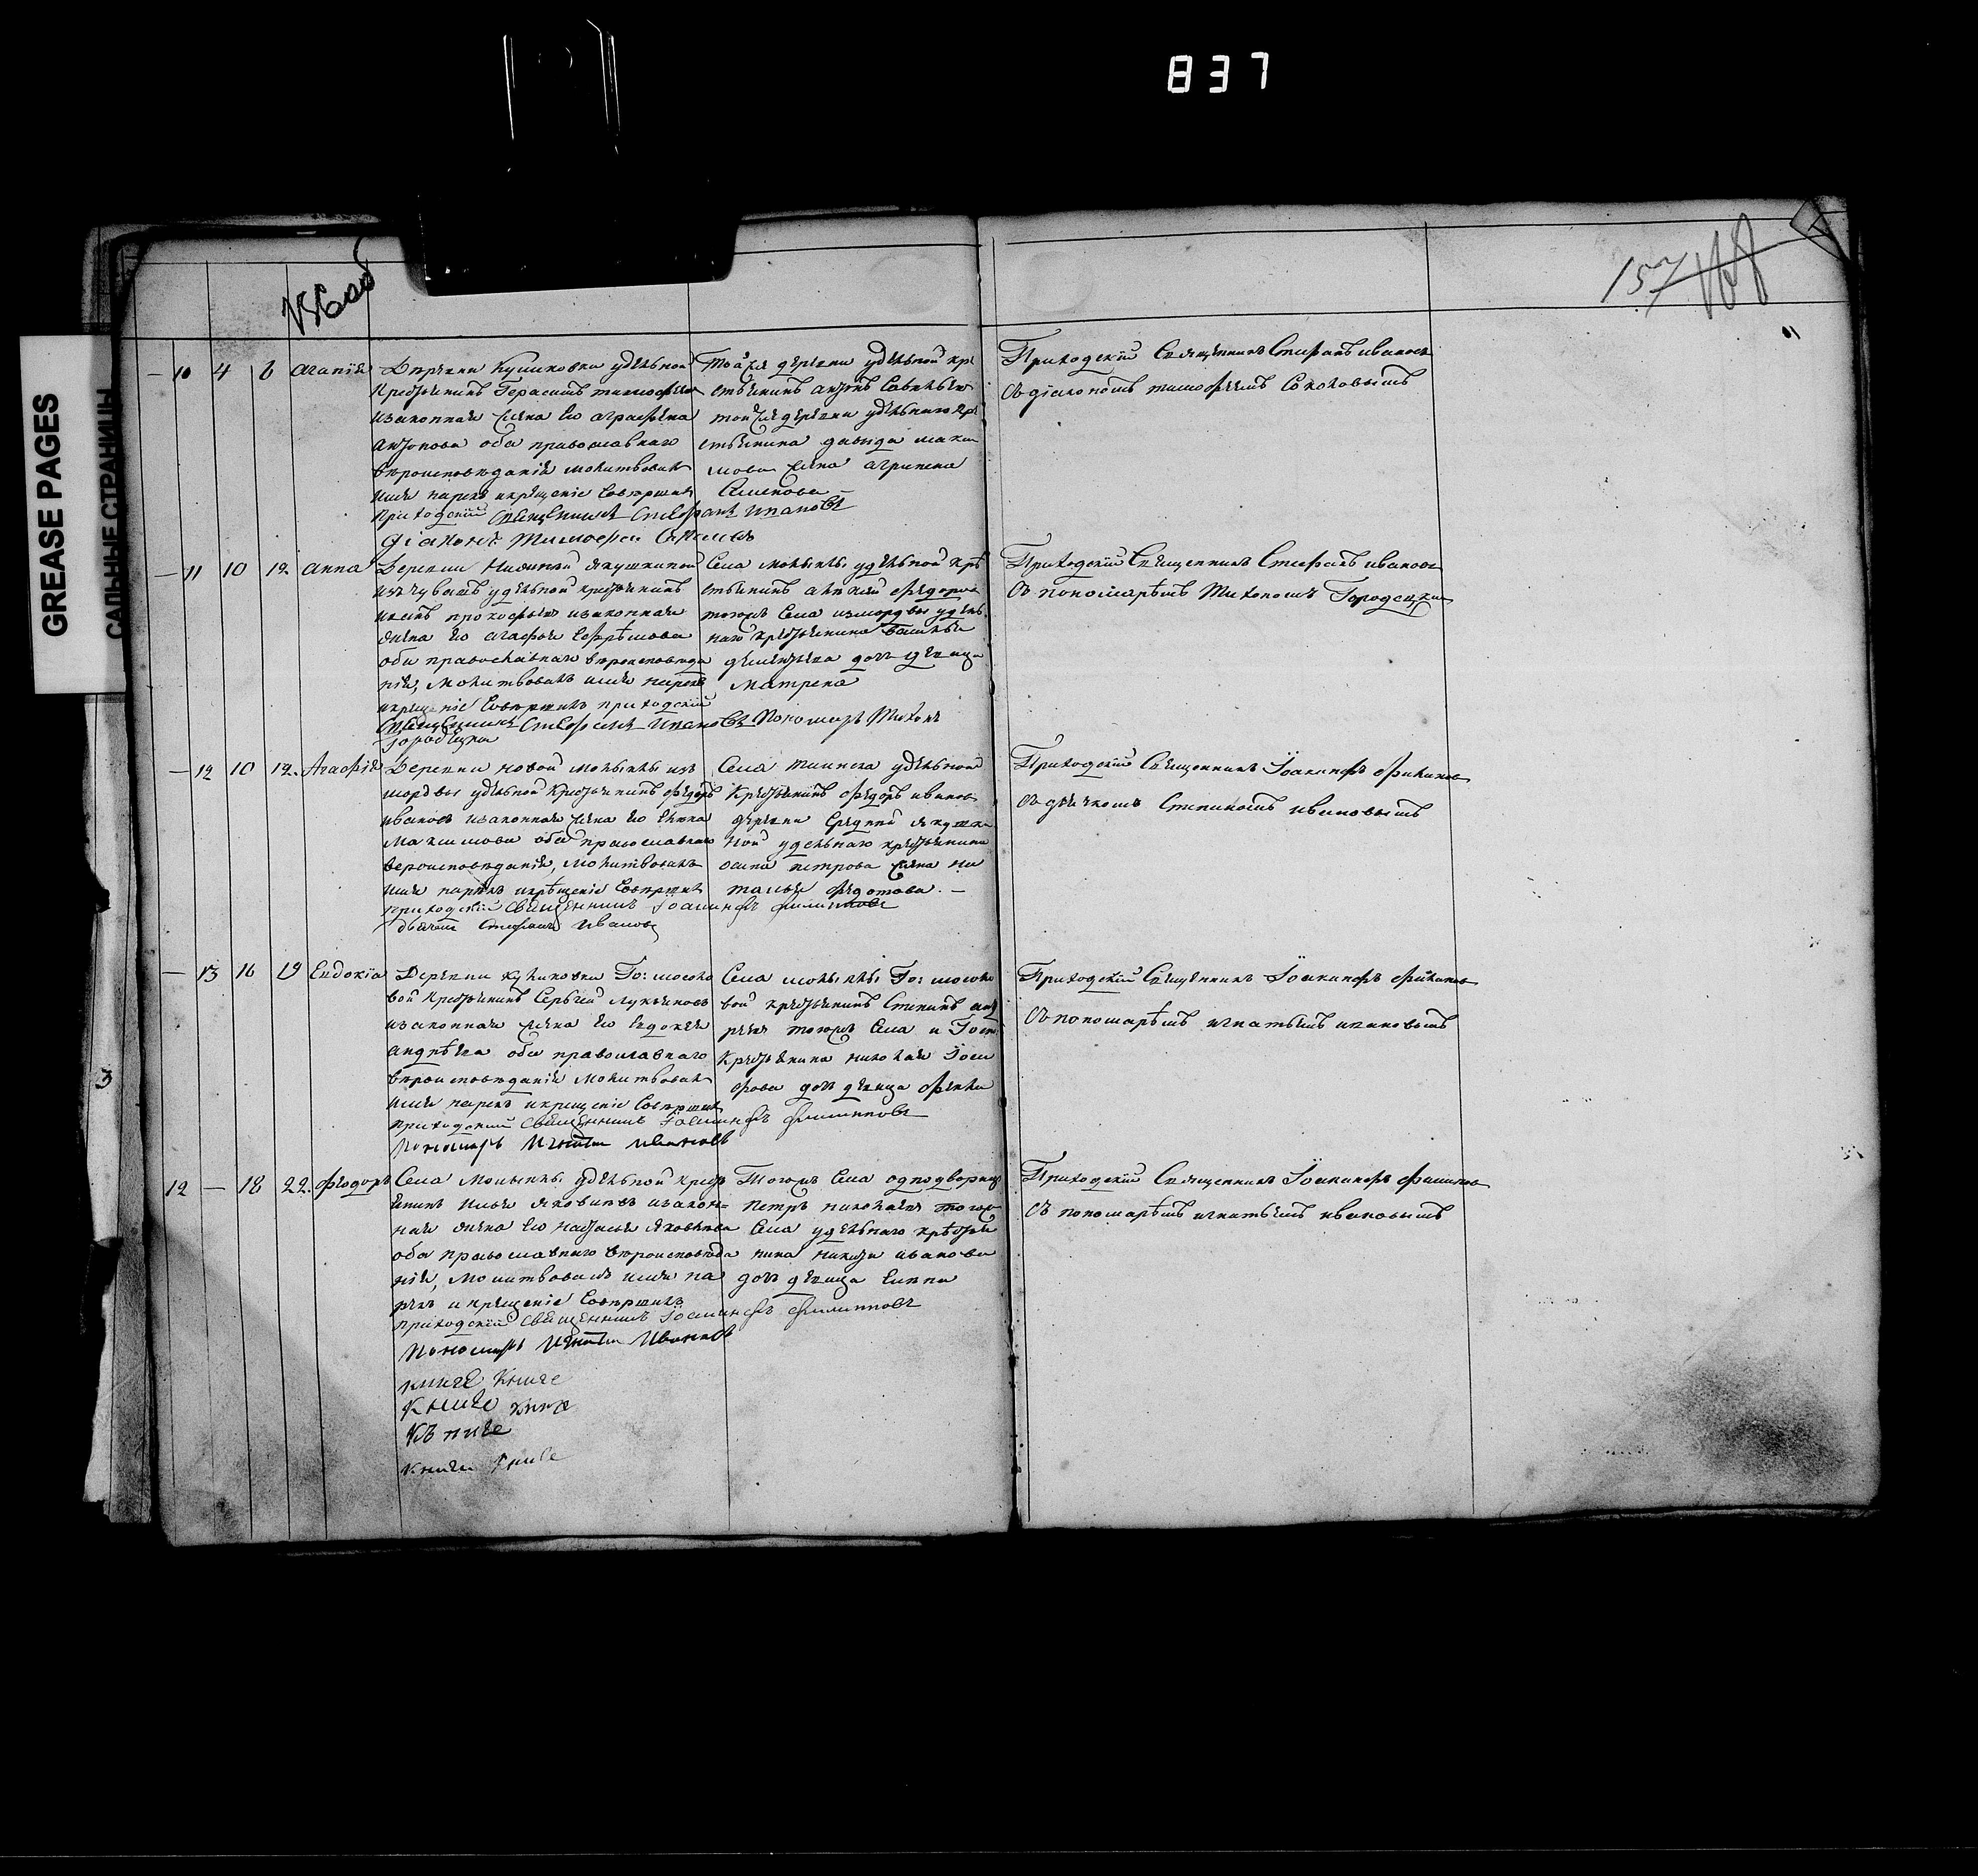 837
GREASE PAGES
САЛЬНЫЕ СТРАНИЦЫ
157
— 10 4 6 Агапія
Деревни Куликовки удѣльной
крестьянинъ Герасимъ Тимофѣевъ
и законная жена его Аграфена
Антонова оба православнаго
вѣроисповѣданія молитвовалъ
имя нарекъ и крещеніе совершилъ
приходскій священникъ Стефанъ Ивановъ
діаконъ Тимофей
Тояже деревни удѣльной кре
стьянинъ Антонъ Савельевъ
тойже деревни удѣльнаго кре
стьянина Давида Макси
мова жена Агрипена
Семенова —
Приходскій Священникъ Стефанъ Ивановъ
съ діакономъ Тимофеемъ Соколовымъ
— 11 10 12. Анна
Деревни Нижней Якушкиной
изъ чувашъ удѣльной крестьянинъ
прокофьевъ и законная
жена его Агафья Ефрѣмова
оба православнаго вѣроисповѣда
нія, молитвовалъ имя нарекъ
и крещеніе совершилъ приходскій
Священникъ Стефанъ Ивановъ Пономарь Тихонъ
Городецкій
Села удѣльной кре
стьянинъ Алѣксѣй Федоровъ
тогожъ Села измордвы удѣль
наго крестьянина Василья
дементьева дочь девица
Матрена
Приходскій Священникъ Стефанъ Ивановъ
съ пономарѣмъ Тихономъ Городецкимъ
— 12 10 12. Агафія
Деревни новой изъ
мордвы удѣльной крестьянинъ Федоръ
Ивановъ и законная жена его Елена
Максимова оба православнаго
вероисповѣданія, молитвовалъ
имя нарекъ и крѣщеніе совершилъ
приходскій Священникъ Іоакинфъ Филиповъ
дьячекъ Стефанъ Ивановъ
Села удѣльной
крестьянинъ Федоръ Ивановъ
деревни Средней Якушки
ной удѣльнаго крестьянина
осипа петрова жена На
талья Федотова. —
Приходскій Священникъ Іоакинфъ Филиповъ
съ дьячкомъ Степаномъ Ивановымъ
— 13 16 19 Евдокіа
Деревни Куликовки Го:
вой крестьянинъ Сергѣй Лукьяновъ
и законная жена его Евдокея
Андрѣева оба православнаго
вѣроисповѣданія молитвовалъ
имя нарекъ и крещеніе совершилъ
приходскій Священникъ Іоакинфъ Филипповъ
Пономарь Игнатій Ивановъ
Села Го:
вой крестьянинъ Степанъ анд
реевъ тогожъ Села и Гост:
крестьянина Николая Іоси
фова дочь девица Фекла
Приходскій Священникъ Іоакинфъ Филиповъ
съ пономарѣмъ игнатьемъ ивановымъ
12 — 18 22. Федоръ
Села удѣльной кресть
янинъ Илья Яковлевъ и закон=
ная жена его Настасья Яковлева
оба православнаго вѣроисповѣда
нія, молитвовалъ имя на
рекъ и крещеніе совершилъ
приходскій Священникъ Іоакинфъ Филипповъ
Пономарь Игнатій Ивановъ
Тогожъ Села однодворецъ
петръ николаевъ тогожъ
Села удѣльнаго крѣстья
нина никиты иванова
дочь девица Елена
Приходскій Священникъ Іоакинфъ Филиповъ
съ пономарѣмъ игнатьемъ ивановымъ
книге книге
книге книга
Къ ниге
Книги книге